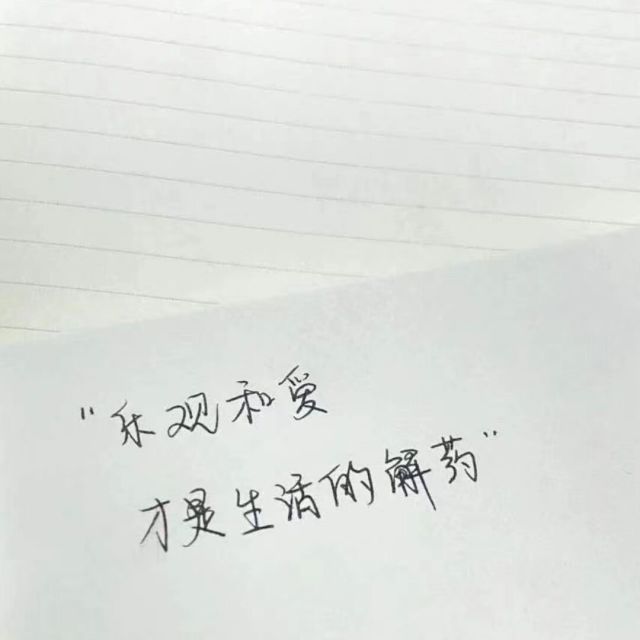 "乐观和爱
才是生活的解药"